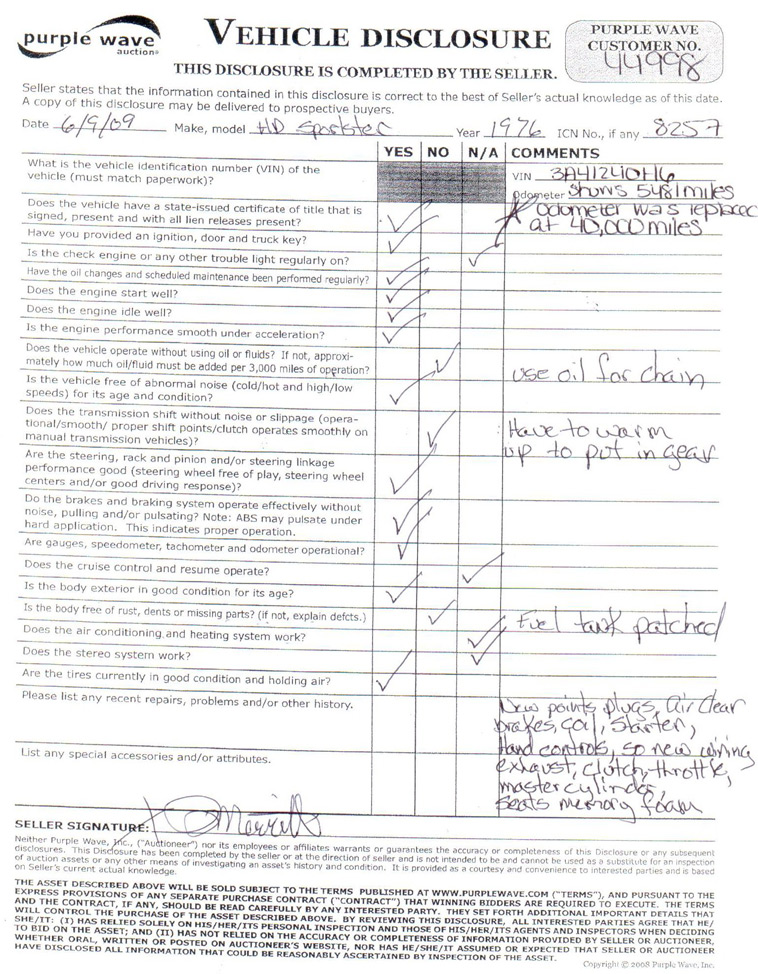 purple wave
auction™
VEHICLE DISCLOSURE
THIS DISCLOSURE IS COMPLETED BY THE SELLER.
PURPLE WAVE
CUSTOMER NO.
44998
Seller states that the information contained in this disclosure is correct to the best of Seller's actual knowledge as of this date.
A copy of this disclosure may be delivered to prospective buyers.
Date 6/9/09 Make, model HD Sportster Year 1976 ICN No., if any 8257
YES NO N/A COMMENTS
What is the vehicle identification number (VIN) of the
vehicle (must match paperwork)?
VIN 3A41240H6
Odometer Shows 5481 miles
Does the vehicle have a state-issued certificate of title that is
signed, present and with all lien releases present?
odometer was replaced
at 40,000 miles
Have you provided an ignition, door and truck key?
Is the check engine or any other trouble light regularly on?
Have the oil changes and scheduled maintenance been performed regularly?
Does the engine start well?
Does the engine idle well?
Is the engine performance smooth under acceleration?
Does the vehicle operate without using oil or fluids? If not, approxi-
mately how much oil/fluid must be added per 3,000 miles of operation?
use oil for chain
Is the vehicle free of abnormal noise (cold/hot and high/low
speeds) for its age and condition?
Does the transmission shift without noise or slippage (opera-
tional/smooth/ proper shift points/clutch operates smoothly on
manual transmission vehicles)?
Have to warm
up to put in gear
Are the steering, rack and pinion and/or steering linkage
performance good (steering wheel free of play, steering wheel
centers and/or good driving response)?
Do the brakes and braking system operate effectively without
noise, pulling and/or pulsating? Note: ABS may pulsate under
hard application. This indicates proper operation.
Are gauges, speedometer, tachometer and odometer operational?
Does the cruise control and resume operate?
Is the body exterior in good condition for its age?
Is the body free of rust, dents or missing parts? (if not, explain defcts.)
Fuel tank patched
Does the air conditioning and heating system work?
Does the stereo system work?
Are the tires currently in good condition and holding air?
Please list any recent repairs, problems and/or other history.
New points plugs, air clear
brakes, coil, starter,
Hand controls, so new wiring
exhaust, clutch, throttle,
master cylinder,
seats memory foam
List any special accessories and/or attributes.
SELLER SIGNATURE: Merrill
Neither Purple Wave, Inc., ("Auctioneer") nor its employees or affiliates warrants or guarantees the accuracy or completeness of this Disclosure or any subsequent
disclosures. This Disclosure has been completed by the seller or at the direction of seller and is not intended to be and cannot be used as a substitute for an inspection
of auction assets or any other means of investigating an asset's history and condition. It is provided as a courtesy and convenience to interested parties and is based
on Seller's current actual knowledge.
THE ASSET DESCRIBED ABOVE WILL BE SOLD SUBJECT TO THE TERMS PUBLISHED AT WWW.PURPLEWAVE.COM ("TERMS"), AND PURSUANT TO THE
EXPRESS PROVISIONS OF ANY SEPARATE PURCHASE CONTRACT ("CONTRACT") THAT WINNING BIDDERS ARE REQUIRED TO EXECUTE. THE TERMS
AND THE CONTRACT, IF ANY, SHOULD BE READ CAREFULLY BY ANY INTERESTED PARTY. THEY SET FORTH ADDITIONAL IMPORTANT DETAILS THAT
WILL CONTROL THE PURCHASE OF THE ASSET DESCRIBED ABOVE. BY REVIEWING THIS DISCLOSURE, ALL INTERESTED PARTIES AGREE THAT HE/
SHE/IT: (I) HAS RELIED SOLELY ON HIS/HER/ITS PERSONAL INSPECTION AND THOSE OF HIS/HER/ITS AGENTS AND INSPECTORS WHEN DECIDING
TO BID ON THE ASSET; AND (II) HAS NOT RELIED ON THE ACCURACY OR COMPLETENESS OF INFORMATION PROVIDED BY SELLER OR AUCTIONEER,
WHETHER ORAL, WRITTEN OR POSTED ON AUCTIONEER'S WEBSITE, NOR HAS HE/SHE/IT ASSUMED OR EXPECTED THAT SELLER OR AUCTIONEER
HAVE DISCLOSED ALL INFORMATION THAT COULD BE REASONABLY ASCERTAINED BY INSPECTION OF THE ASSET.
Copyright © 2008 Purple Wave, Inc.